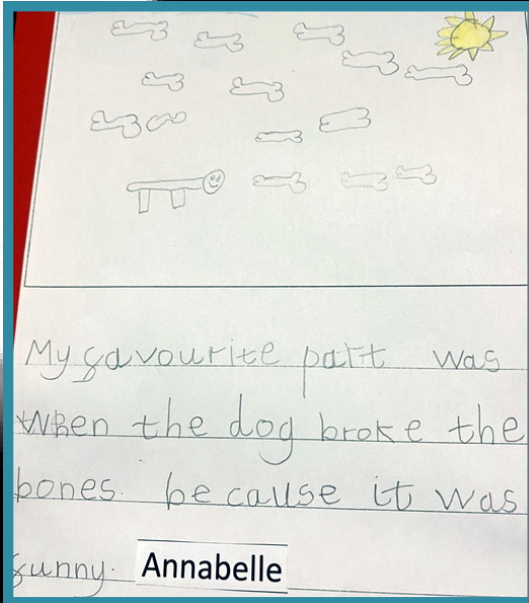 My favourite part was
when the dog broke the
bones. because it was
funny. Annabelle